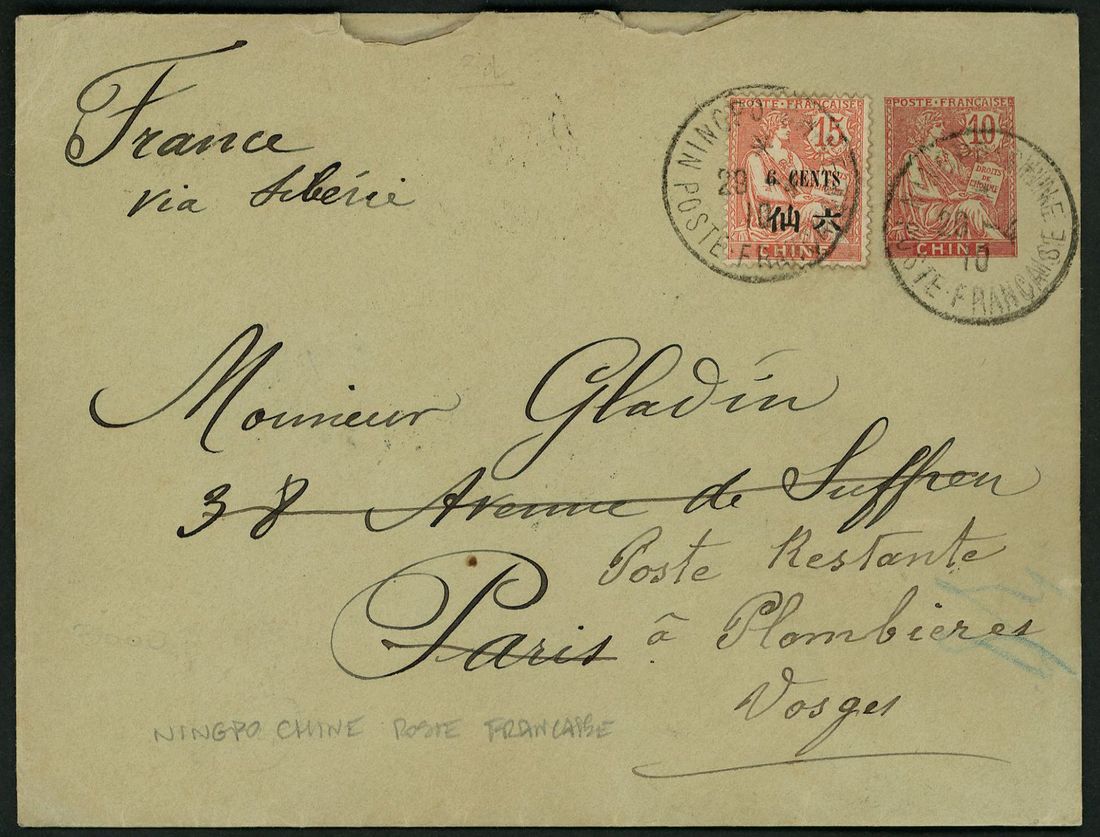 France
via Sibérie
POSTE FRANÇAISE
15
6 CENTS
仙六
CHINE
POSTE FRANÇAISE
10
DROITS DE L'HOMME
CHINE
NINGPO
POSTE FRANÇAISE
10
CHINE
POSTE FRANÇAISE
10
Monsieur Gladin
38 Avenue de Suffren
Paris
Poste Restante
à Plombières
Vosges
NINGPO CHINE POSTE FRANCAISE